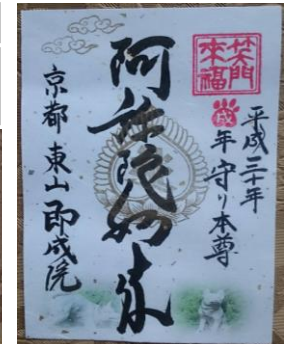 笑門
來福
平成三十年
戌年守り本尊
阿弥陀如来
京都 東山 即成院